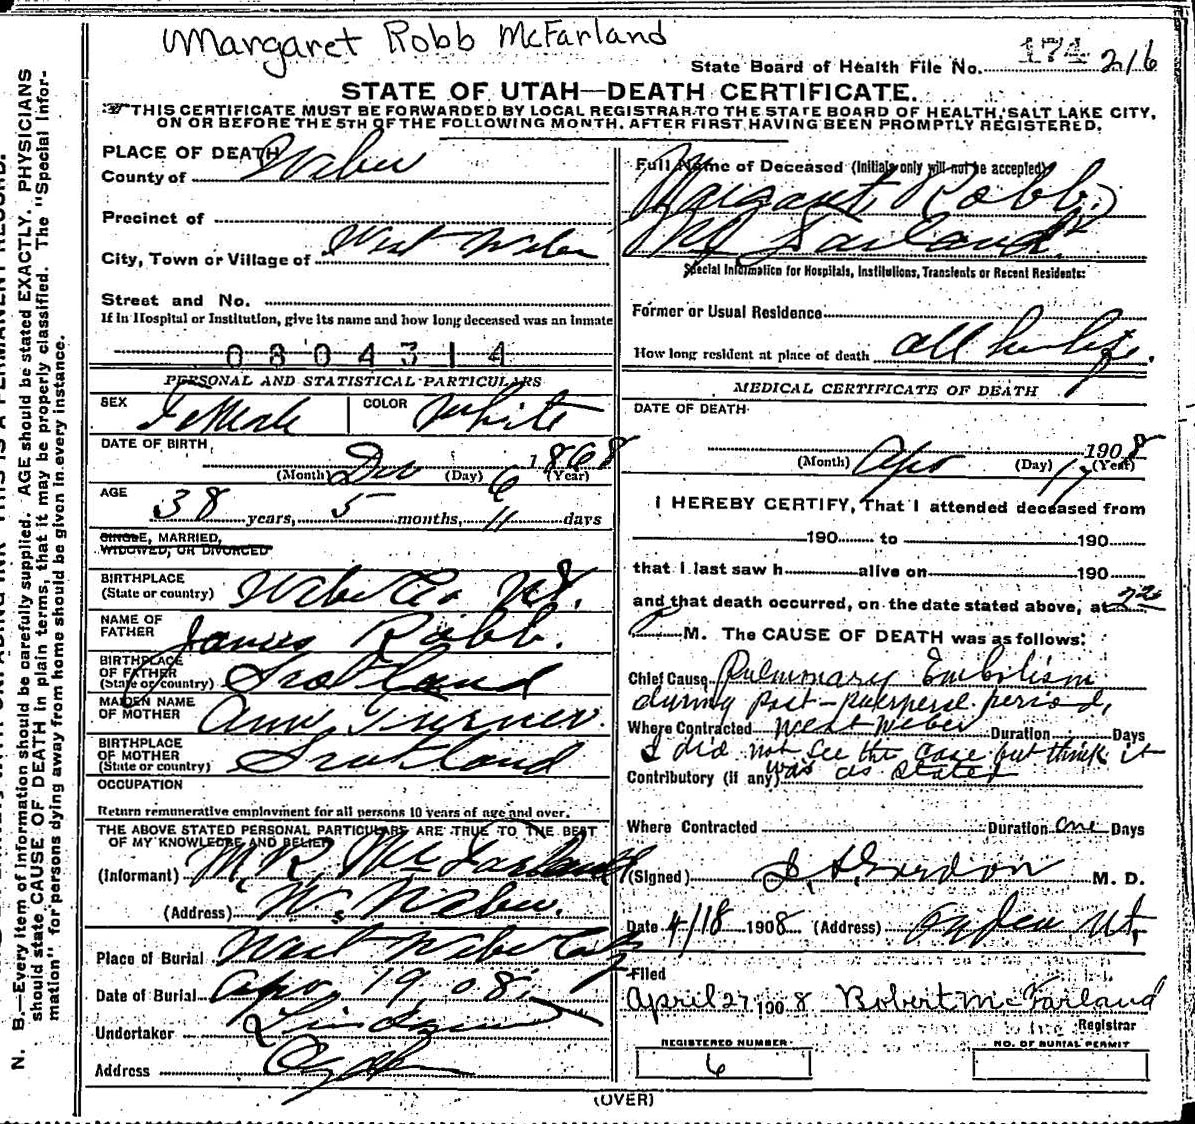 Margaret Robb McFarland
State Board of Health File No. 174 216
STATE OF UTAH—DEATH CERTIFICATE.
THIS CERTIFICATE MUST BE FORWARDED BY LOCAL REGISTRAR TO THE STATE BOARD OF HEALTH, SALT LAKE CITY,
ON OR BEFORE THE 5TH OF THE FOLLOWING MONTH, AFTER FIRST HAVING BEEN PROMPTLY REGISTERED.
PLACE OF DEATH
County of Weber
Precinct of
City, Town or Village of West Weber
Street and No.
If in Hospital or Institution, give its name and how long deceased was an inmate
0804314
PERSONAL AND STATISTICAL PARTICULARS
SEX Female COLOR White
DATE OF BIRTH
(Month) Dec (Day) 6 1868 (Year)
AGE
38 years, 5 months, 11 days
SINGLE, MARRIED,
WIDOWED, OR DIVORCED
BIRTHPLACE
(State or country) Weber Co Ut.
NAME OF
FATHER James Robb.
BIRTHPLACE
OF FATHER
(State or country) Scotland
MAIDEN NAME
OF MOTHER Ann Turner.
BIRTHPLACE
OF MOTHER
(State or country) Scotland
OCCUPATION
Return remunerative employment for all persons 10 years of age and over.
THE ABOVE STATED PERSONAL PARTICULARS ARE TRUE TO THE BEST
OF MY KNOWLEDGE AND BELIEF
(Informant) M. R. McFarland
(Address) W. Weber.
Place of Burial West Weber
Date of Burial Apr 19 08
Undertaker Lindquist
Address Ogden
Full Name of Deceased (Initials only will not be accepted)
Margaret Robb
McFarland.
Special Information for Hospitals, Institutions, Transients or Recent Residents:
Former or Usual Residence
How long resident at place of death all her life.
MEDICAL CERTIFICATE OF DEATH
DATE OF DEATH
(Month) Apr (Day) 17 1908 (Year)
I HEREBY CERTIFY, That I attended deceased from
190 to 190
that I last saw h alive on 190
and that death occurred, on the date stated above, at
P M. The CAUSE OF DEATH was as follows:
Chief Cause Pulmonary Embolism
during post-puerperal period,
Where Contracted West Weber Duration Days
I did not see the case but think it
Contributory (if any) was as stated
Where Contracted Duration one Days
(Signed) Gordon M. D.
Date 4/18 1908 (Address) Ogden Ut.
Filed
April 27 1908 Robert McFarland
Registrar
REGISTERED NUMBER
6
NO. OF BURIAL PERMIT
(OVER)
N. B.—Every item of information should be carefully supplied. AGE should be stated EXACTLY. PHYSICIANS
should state CAUSE OF DEATH in plain terms, that it may be properly classified. The "Special Infor-
mation" for persons dying away from home should be given in every instance.